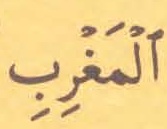 ٱلْمَغْرِبِ